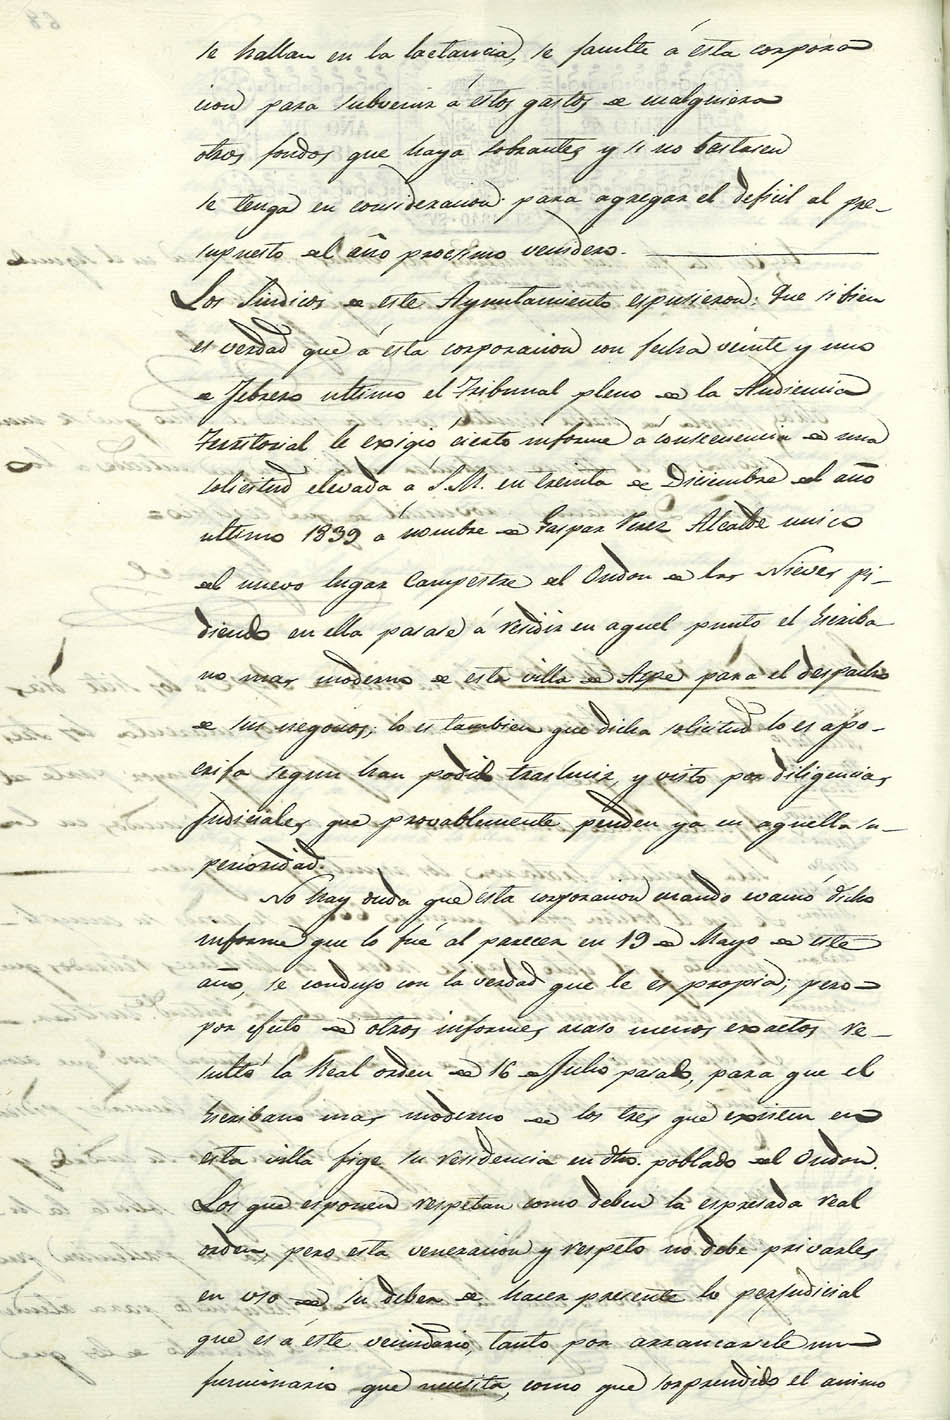 se hallan en la lactancia, se faculte á esta corpora
cion para subvenir á estos gastos de cualquiera
otros fondos que haya sobrantes y si no bastasen
se tenga en consideracion para agregar el deficil al pre-
supuesto del año procsimo venidero.
Los Sindicos de este Ayuntamiento espusieron: Que si bien
es verdad que á esta corporacion con fecha veinte y uno
de Febrero ultimo el Tribunal pleno de la Audiencia
Territorial le exigió cierto informe á consecuencia de una
solicitud elevada á S.M. en treinta de Diciembre del año
ultimo 1839 á nombre de Gaspar Perez Alcalde unico
del nuevo lugar Campestre del Ondon de las Nieves pi-
diendo en ella pasase á residir en aquel punto el Escriba
no mas moderno de esta villa de Aspe para el despacho
de sus negocios; lo es tambien que dicha solicitud lo es apo-
crifa segun han podido traslucir, y visto por diligencias
Judiciales que provablemente penden ya en aquella su-
perioridad.
No hay duda que esta corporacion cuando evacuó dicho
informe que lo fué al parecer en 19 de Mayo de este
año, se condujo con la verdad que le es propia; pero
por efecto de otros informes acaso menos exactos re-
sultó la Real orden de 16 de Julio pasado, para que el
Escribano mas moderno de los tres que existen en
esta villa fige su residencia en dho. poblado del Ondon.
Los que esponen respetan como deben la espresada real
orden, pero esta veneracion y respeto no debe privarles
en uso de su deber de hacer presente lo perjudicial
que es á este vecindario, tanto por arrancarsele un
funcionario que necesita, como que sorprendido el animo